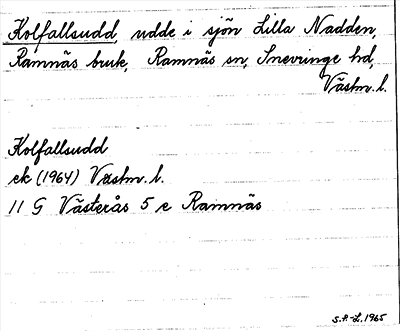 Kolfallsudd, udde i sjön Lilla Nadden,
Ramnäs bruk, Ramnäs sn, Snevringe hd,
Västm.l.
Kolfallsudd
ek (1964) Västm.l.
11 G Västerås 5 e Ramnäs
S.A.-L. 1965